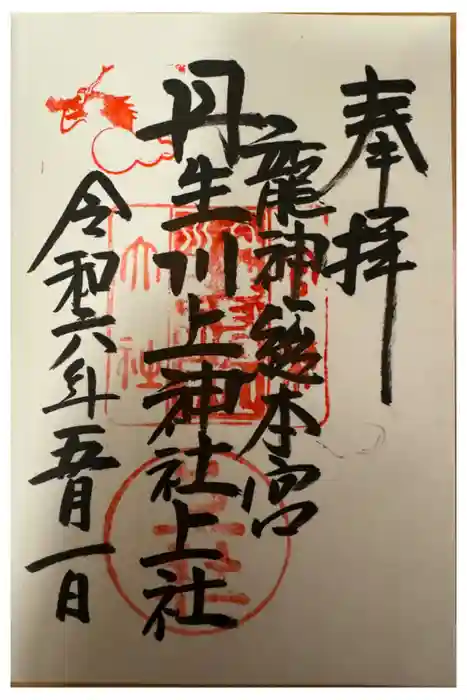 奉拝
龍神総本宮
丹生川上神社上社
令和六年五月一日